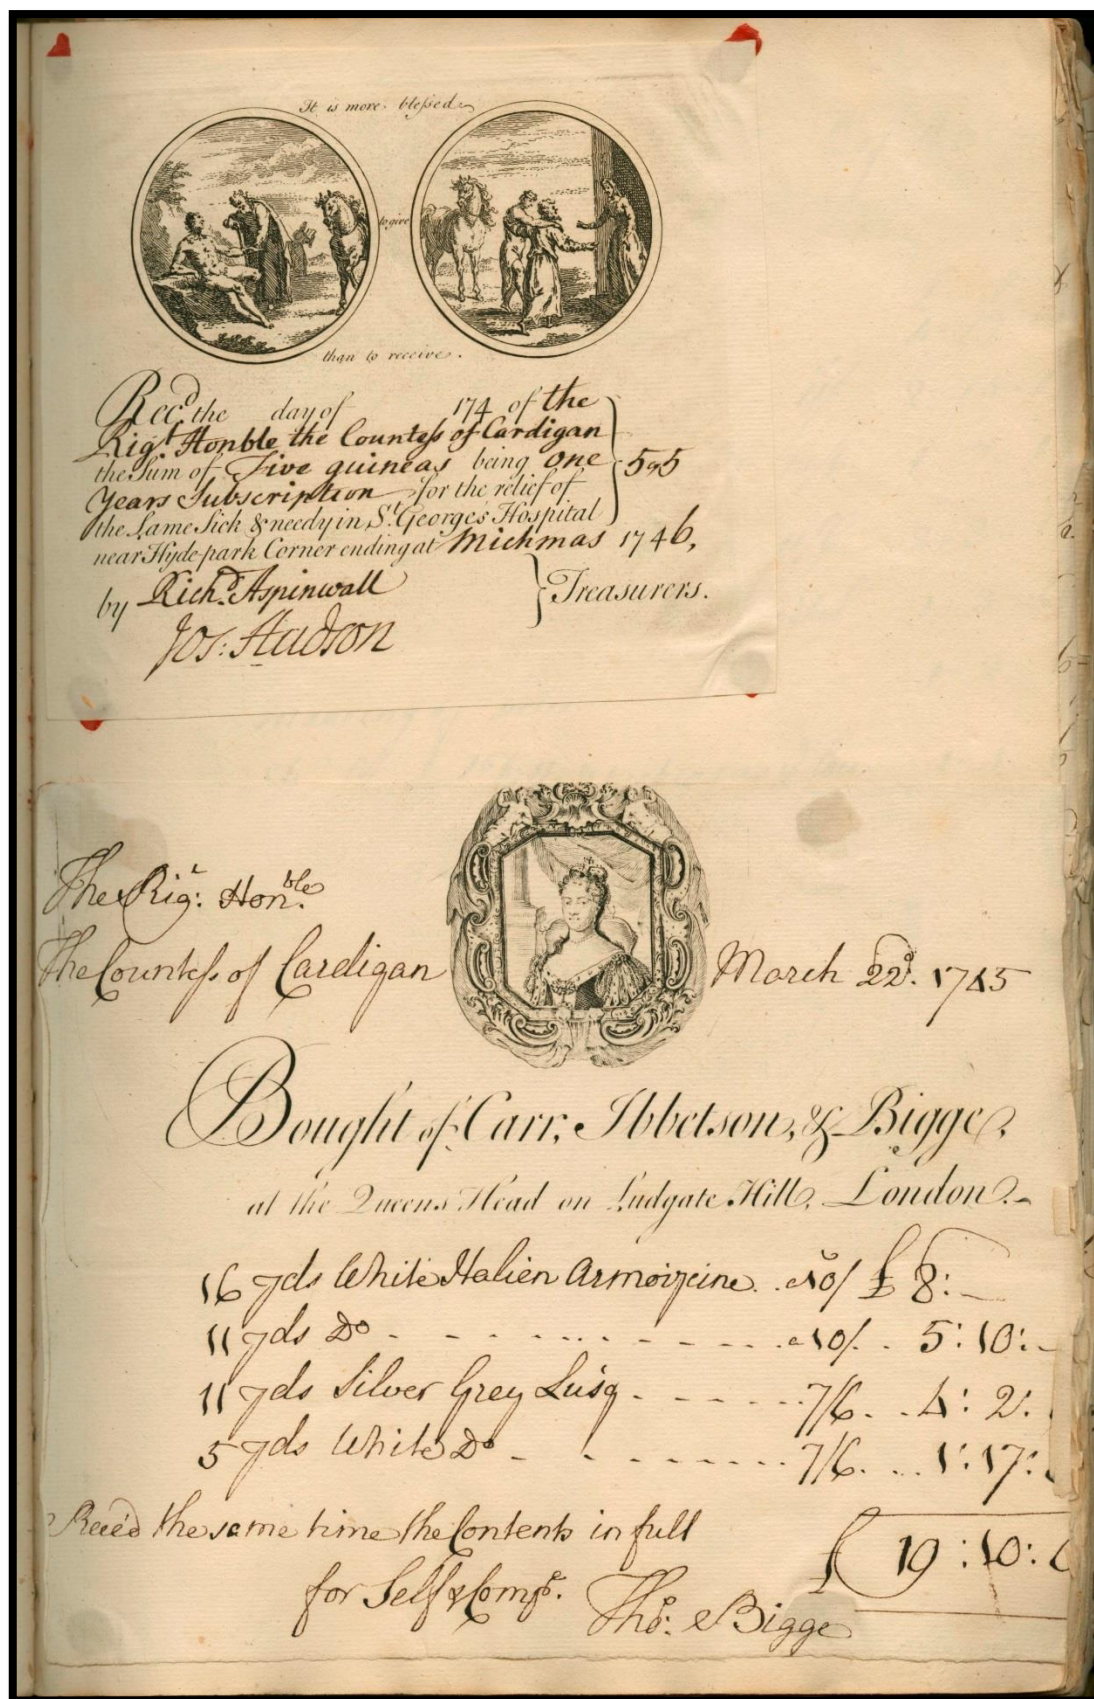 It is more blessed
to give
than to receive.
Recd. the day of 174 of the
Rigt. Honble the Countess of Cardigan
the Sum of Five guineas being One
Years Subscription for the relief of
the Lame Sick & needy in St. Georges Hospital
near Hyde park Corner ending at Michmas 1746,
5"5
by Richd. Aspinwall
Jos: Hudson
Treasurers.
The Rigt: Honble.
The Countess of Cardigan
March 22d. 1745
Bought of Carr, Ibbetson, & Bigge,
at the Queens Head on Ludgate Hill, London.
16 yds White Italien Armoizeine a 10/ £ 8:
11 yds Do a 10/. 5:10:
11 yds Silver Grey Lusg 7/6 4: 2:
5 yds White Do 7/6 1:17:
Rece'd the same time the Contents in full
£ 19:10:
for Self & Compa.
Tho: Bigge